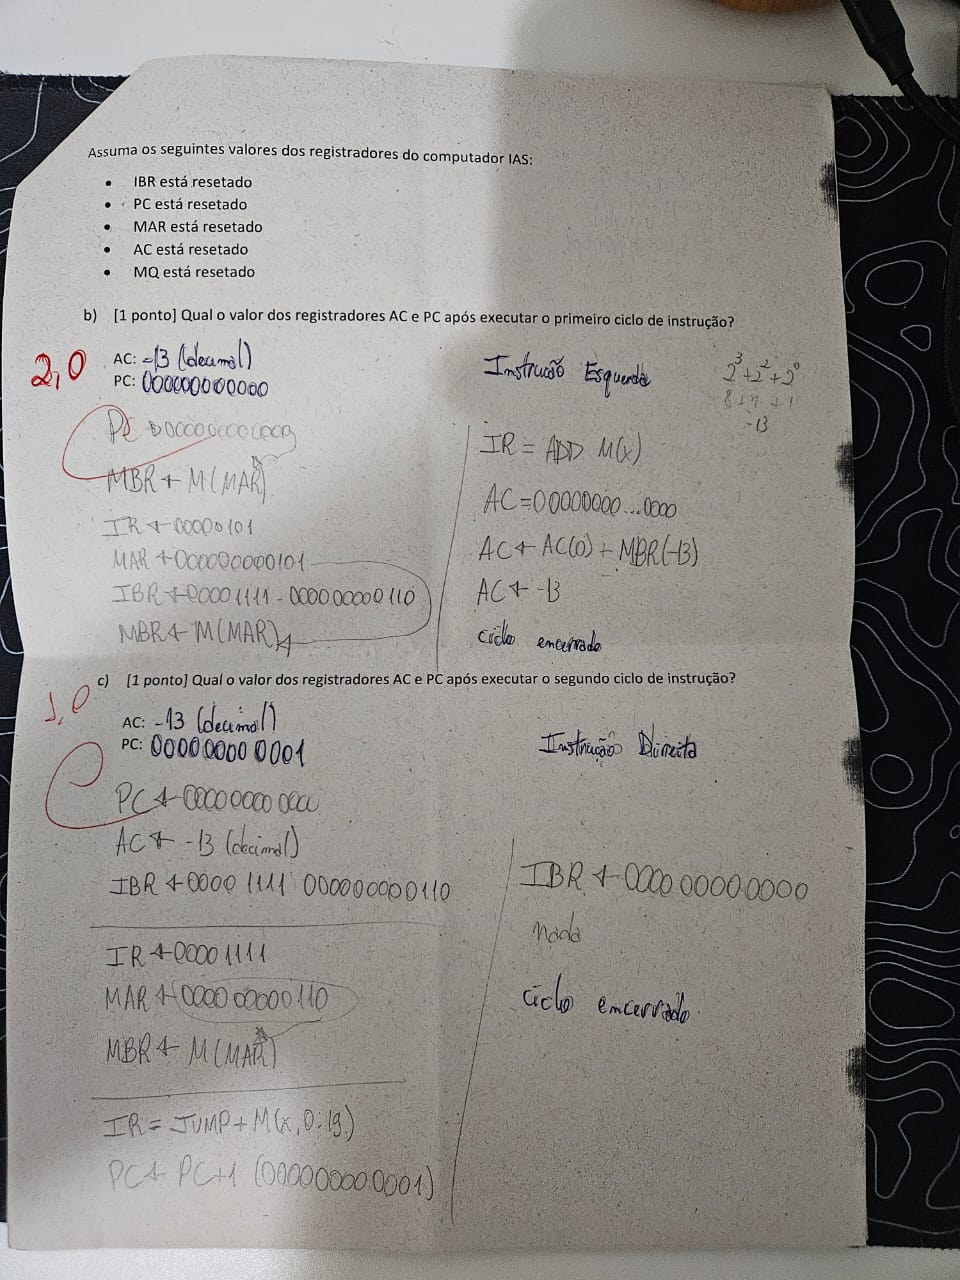 Assuma os seguintes valores dos registradores do computador IAS:
• IBR está resetado
• PC está resetado
• MAR está resetado
• AC está resetado
• MQ está resetado
b) [1 ponto] Qual o valor dos registradores AC e PC após executar o primeiro ciclo de instrução?
2,0
AC: -13 (decimal)
PC: 000000000000
Instrução Esquerda
2³+2²+2⁰
8+4+1
-13
PC ← 000000000000
MBR ← M(MAR)
IR ← 00000101
MAR ← 000000000101
IBR ← 00001111 - 000000000110
MBR ← M(MAR)
IR = ADD M(x)
AC = 00000000...0000
AC ← AC(0) + MBR(-13)
AC ← -13
ciclo encerrado
c) [1 ponto] Qual o valor dos registradores AC e PC após executar o segundo ciclo de instrução?
1,0
AC: -13 (decimal)
PC: 000000000001
Instrução Direita
PC ← 00000000000
AC ← -13 (decimal)
IBR ← 0000 1111 000000000110
IR ← 00001111
MAR ← 000000000110
MBR ← M(MAR)
IR = JUMP + M(x, 0:19)
PC ← PC+1 (000000000001)
IBR ← 0000 00000000
nada
ciclo encerrado.